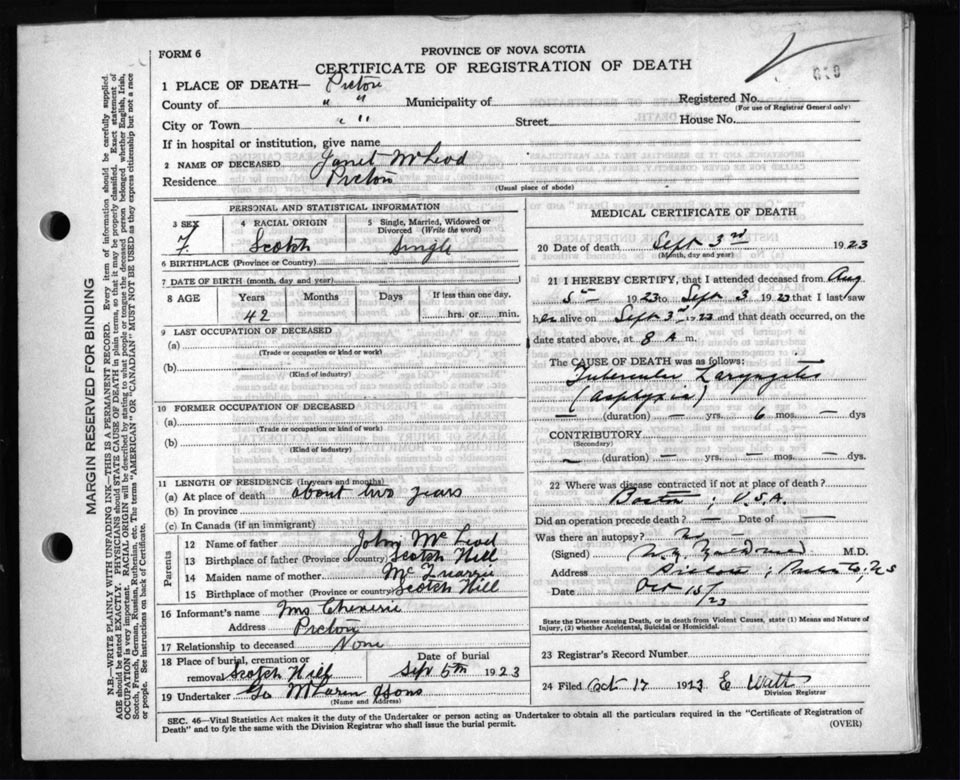 FORM 6
PROVINCE OF NOVA SCOTIA
CERTIFICATE OF REGISTRATION OF DEATH
1 PLACE OF DEATH— Pictou
County of " " Municipality of
Registered No.
(For use of Registrar General only)
City or Town " " Street House No.
If in hospital or institution, give name
2 NAME OF DECEASED Janet McLeod
Residence Pictou
(Usual place of abode)
PERSONAL AND STATISTICAL INFORMATION
3 SEX 4 RACIAL ORIGIN 5 Single, Married, Widowed or Divorced (Write the word)
F. Scotch Single
6 BIRTHPLACE (Province or Country)
7 DATE OF BIRTH (month, day and year)
8 AGE Years Months Days If less than one day.
42 hrs. or min.
9 LAST OCCUPATION OF DECEASED
(a)
(Trade or occupation or kind of work)
(b)
(Kind of industry)
10 FORMER OCCUPATION OF DECEASED
(a)
(Trade or occupation or kind of work)
(b)
(Kind of industry)
11 LENGTH OF RESIDENCE (In years and months)
(a) At place of death about two years
(b) In province
(c) In Canada (if an immigrant)
Parents
12 Name of father John McLeod
13 Birthplace of father (Province or country) Scotch Hill
14 Maiden name of mother
15 Birthplace of mother (Province or country) Scotch Hill
16 Informant's name Mrs
Address Pictou
17 Relationship to deceased None
18 Place of burial, cremation or removal Scotch Hill
Date of burial
Sep 5th 1923
19 Undertaker Geo McLaren & Sons
(Name and Address)
MEDICAL CERTIFICATE OF DEATH
20 Date of death Sept 3rd 1923
(Month, day and year)
21 I HEREBY CERTIFY, that I attended deceased from Aug
5th 1923 to Sept 3 1923 that I last saw
her alive on Sept 3rd 1923 and that death occurred, on the
date stated above, at 8 A m.
The CAUSE OF DEATH was as follows:
Tubercular Laryngitis
(Asphyxia)
— (duration) — yrs. 6 mos. — dys
CONTRIBUTORY
(Secondary)
— (duration) — yrs. — mos. — dys.
22 Where was disease contracted if not at place of death?
Boston, U.S.A.
Did an operation precede death? — Date of —
Was there an autopsy? No
(Signed) M.D.
Address Pictou, Pictou Co, NS
Date Oct 15/23
State the Disease causing Death, or in death from Violent Causes, state (1) Means and Nature of Injury, (2) whether Accidental, Suicidal or Homicidal.
23 Registrar's Record Number
24 Filed Oct 17 1923 E
Division Registrar
SEC. 46—Vital Statistics Act makes it the duty of the Undertaker or person acting as Undertaker to obtain all the particulars required in the "Certificate of Registration of
Death" and to fyle the same with the Division Registrar who shall issue the burial permit.
(OVER)
MARGIN RESERVED FOR BINDING
N.B—WRITE PLAINLY WITH UNFADING INK—THIS IS A PERMANENT RECORD. Every item of information should be carefully supplied.
AGE should be stated EXACTLY. PHYSICIANS should STATE CAUSE OF DEATH in plain terms, so that it may be properly classified. Exact statement of
OCCUPATION is very important. RACIAL ORIGIN will be described by stating to what people or tongue the deceased person belonged whether English, Irish,
Scotch, French, German, Russian, Ruthenian, etc. The terms "AMERICAN" OR "CANADIAN" MUST NOT BE USED as they express citizenship but not a race
or people. See instructions on back of Certificate.